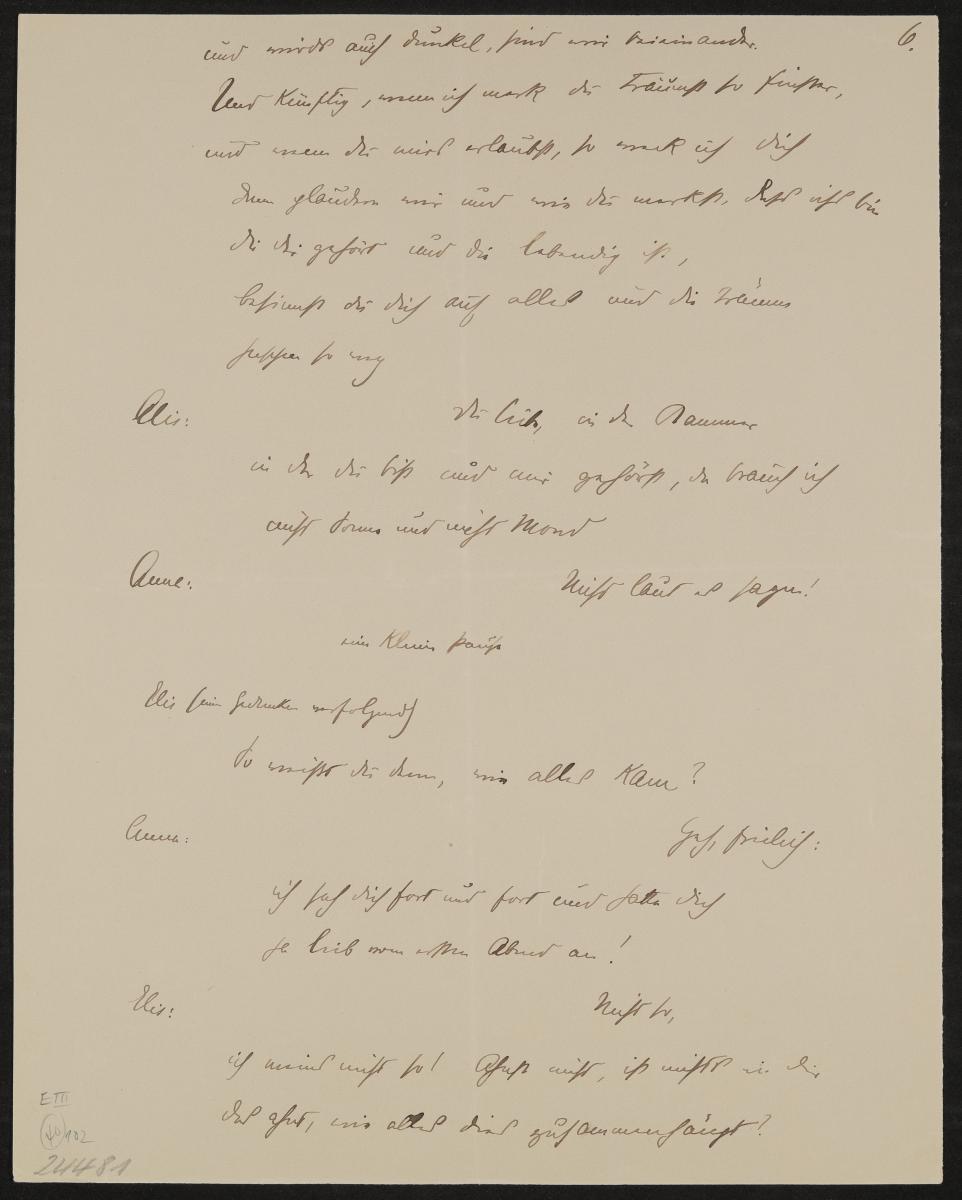 6.
und wirds auch dunkel, sind wir beieinander.
Und künftig, wenn ich merk du träumst so finster,
und wenn du mirs erlaubst, so weck ich dich
dann plaudern wir und wie du merkst, dass ichs bin
die dir gehört und die lebendig ist,
besinnst du dich auf alles und die Träume
so weg
Elis: du liebe, in der Kammer
in der du bist und mir gehörst, da brauch ich
nicht Sonne und nicht Mond
Anna: Nicht laut es sagen!
eine kleine Pause
Elis (seine Gedanken verfolgend)
So weisst du denn, wie alles kam?
Anna: Geh, freilich:
ich sah dich fort und fort und hatte dich
ja lieb vom ersten Abend an!
Elis: Nicht so,
ich meins nicht so! Ahnst nicht, ist nichts in dir
das ahnt, wie alles dies zusammenhängt?
E III
102
24481